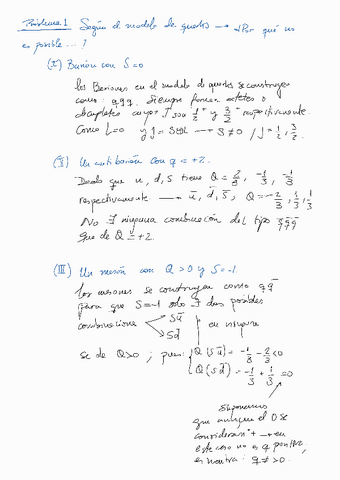 Problema 1 Según el modelo de quarks → ¿Por qué no
es posible... ?
(I) Barión con S=0
los Bariones en el modelo de quarks se construyen
como: qqq. Siempre forman octetes o
decupletes cuyos J son 1/2 y 3/2 respectivamente
Como L=0 y J=S⊕L → S≠0 / J=1/2, 3/2.
(II) Un antibarión con q=+2.
Dado que u, d, s tiene Q = 2/3, -1/3, -1/3
respectivamente → ū, d̄, s̄, Q=-2/3, 1/3, 1/3
No ∃ ninguna combinación del tipo q̄q̄q̄
que de Q = +2.
(III) Un mesón con Q>0 y S=-1.
los mesones se construyen como qq̄
para que S=-1 solo ∃ dos posibles
combinaciones sū
sd̄
en ninguna
se da Q>0 ; pues: Q(sū) = -1/3 - 2/3 <0
Q(sd̄) = -1/3 + 1/3 =0
Suponemos
que aunque el 0 se
considerará + → en
este caso no es q positiva,
es neutra: q ≯ 0.